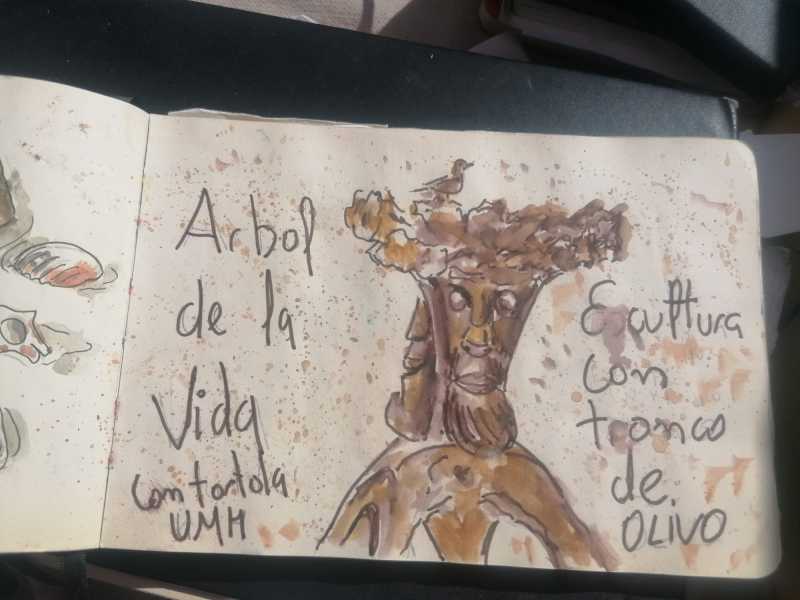 Arbol
de la
Vida
con tortola
UMH
Escultura
con
tronco
de
OLIVO